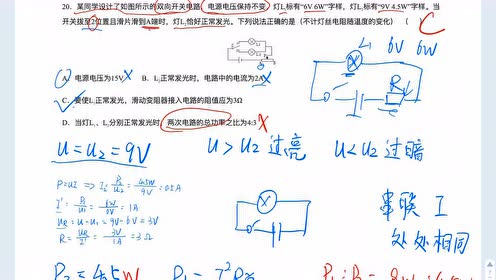 20. 某同学设计了如图所示的双向开关电路，电源电压保持不变，灯L₁标有“6V 6W”字样，灯L₂标有“9V 4.5W”字样。当
开关拨至2位置且滑片滑到A端时，灯L₂恰好正常发光。下列说法正确的是（不计灯丝电阻随温度的变化）（
C
A. 电源电压为15V X B. L₁正常发光时，电路中的电流为2A X
C. 要使L₁正常发光，滑动变阻器接入电路的阻值应为3Ω
D. 当灯L₁、L₂分别正常发光时，两次电路的总功率之比为4:3 X
L₁ 6V 6W
R
U = U₂ = 9V
U > U₂ 过亮 U < U₂ 过暗
P=UI => I₂ = P₂/U₂ = 4.5W/9V = 0.5A
I' = P₁/U₁ = 6W/6V = 1A
U_R = U - U₁ = 9V - 6V = 3V
R = U_R/I' = 3V/1A = 3Ω
串联 I
处处相同